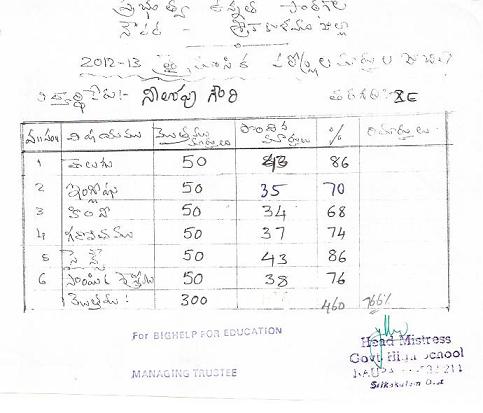 ప్రభుత్వ ఉన్నత పాఠశాల
నౌపడ - శ్రీకాకుళం జిల్లా
2012-13 త్రైమాసిక పరీక్షల మార్కుల జాబితా
విద్యార్థి పేరు:- గౌరి తరగతి: XE
వ॥సం॥ విషయము మొత్తము మార్కులు పొందిన మార్కులు % రిమార్కులు
1 తెలుగు 50 43 86
2 ఇంగ్లీషు 50 35 70
3 హిందీ 50 34 68
4 గణితము 50 37 74
5 సైన్స్ 50 43 86
6 సాంఘిక శాస్త్రం 50 38 76
మొత్తము: 300 460 766%
For BIGHELP FOR EDUCATION
MANAGING TRUSTEE
Head Mistress
Govt High School
NAUPADA 532211
Srikakulam Dist